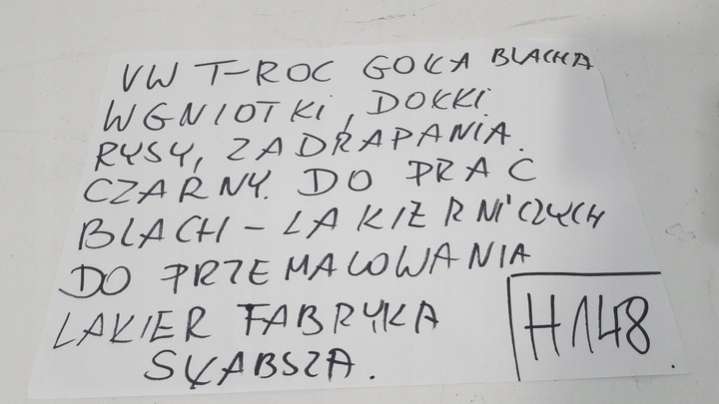 VW T-ROC GOŁA BLACHA
WGNIOTKI, DOŁKI
RYSY, ZADRAPANIA.
CZARNY. DO PRAC
BLACH-LAKIERNICZYCH
DO PRZEMALOWANIA
LAKIER FABRYKA
SŁABSZA.
H148